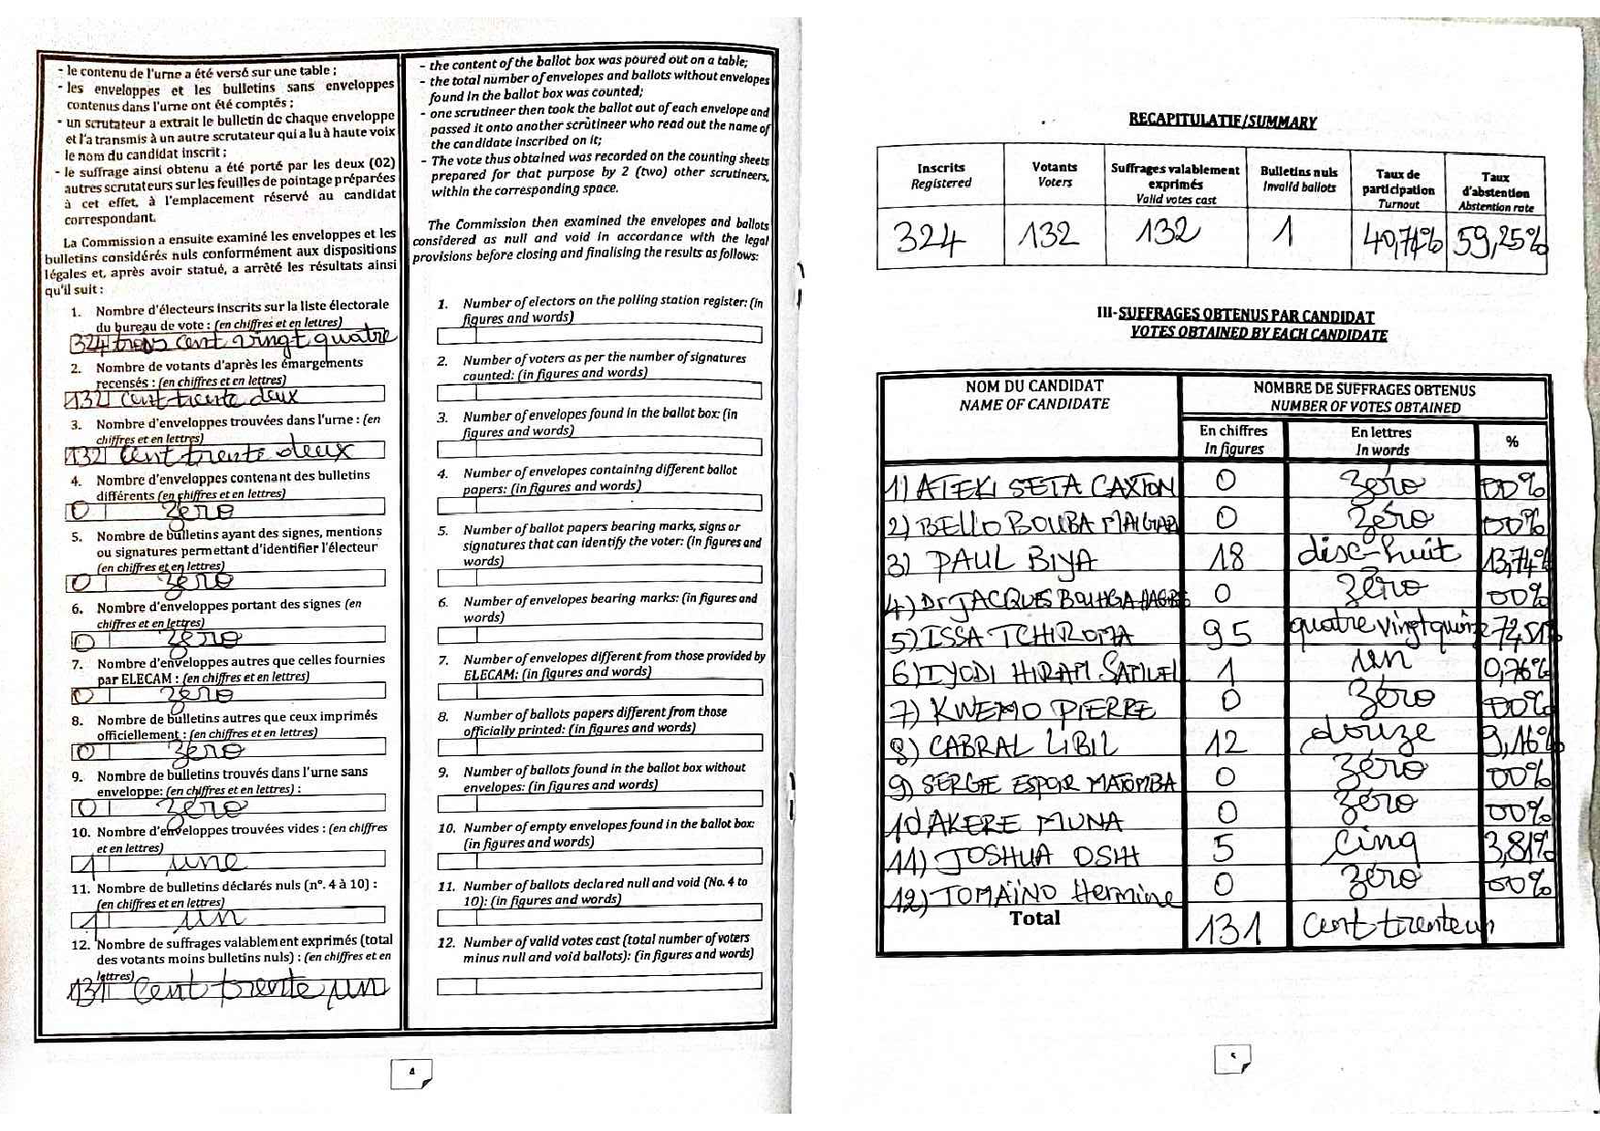 - le contenu de l'urne a été versé sur une table ;
- les enveloppes et les bulletins sans enveloppes
contenus dans l'urne ont été comptés ;
- un scrutateur a extrait le bulletin de chaque enveloppe
et l'a transmis à un autre scrutateur qui a lu à haute voix
le nom du candidat inscrit ;
- le suffrage ainsi obtenu a été porté par les deux (02)
autres scrutateurs sur les feuilles de pointage préparées
à cet effet, à l'emplacement réservé au candidat
correspondant.
La Commission a ensuite examiné les enveloppes et les
bulletins considérés nuls conformément aux dispositions
légales et, après avoir statué, a arrêté les résultats ainsi
qu'il suit :
1. Nombre d'électeurs inscrits sur la liste électorale
du bureau de vote : (en chiffres et en lettres)
324 trois cent vingt quatre
2. Nombre de votants d'après les émargements
recensés : (en chiffres et en lettres)
132 cent trente deux
3. Nombre d'enveloppes trouvées dans l'urne : (en
chiffres et en lettres)
132 cent trente deux
4. Nombre d'enveloppes contenant des bulletins
différents (en chiffres et en lettres)
0 zero
5. Nombre de bulletins ayant des signes, mentions
ou signatures permettant d'identifier l'électeur
(en chiffres et en lettres)
0 zero
6. Nombre d'enveloppes portant des signes (en
chiffres et en lettres)
0 zero
7. Nombre d'enveloppes autres que celles fournies
par ELECAM : (en chiffres et en lettres)
0 zero
8. Nombre de bulletins autres que ceux imprimés
officiellement : (en chiffres et en lettres)
0 zero
9. Nombre de bulletins trouvés dans l'urne sans
enveloppe: (en chiffres et en lettres) :
0 zero
10. Nombre d'enveloppes trouvées vides : (en chiffres
et en lettres)
1 une
11. Nombre de bulletins déclarés nuls (n°. 4 à 10) :
(en chiffres et en lettres)
1 un
12. Nombre de suffrages valablement exprimés (total
des votants moins bulletins nuls) : (en chiffres et en
lettres)
131 cent trente un
- the content of the ballot box was poured out on a table;
- the total number of envelopes and ballots without envelopes
found in the ballot box was counted;
- one scrutineer then took the ballot out of each envelope and
passed it onto another scrutineer who read out the name of
the candidate inscribed on it;
- The vote thus obtained was recorded on the counting sheets
prepared for that purpose by 2 (two) other scrutineers,
within the corresponding space.
The Commission then examined the envelopes and ballots
considered as null and void in accordance with the legal
provisions before closing and finalising the results as follows:
1. Number of electors on the polling station register: (in
figures and words)
2. Number of voters as per the number of signatures
counted: (in figures and words)
3. Number of envelopes found in the ballot box: (in
figures and words)
4. Number of envelopes containing different ballot
papers: (in figures and words)
5. Number of ballot papers bearing marks, signs or
signatures that can identify the voter: (in figures and
words)
6. Number of envelopes bearing marks: (in figures and
words)
7. Number of envelopes different from those provided by
ELECAM: (in figures and words)
8. Number of ballots papers different from those
officially printed: (in figures and words)
9. Number of ballots found in the ballot box without
envelopes: (in figures and words)
10. Number of empty envelopes found in the ballot box:
(in figures and words)
11. Number of ballots declared null and void (No. 4 to
10): (in figures and words)
12. Number of valid votes cast (total number of voters
minus null and void ballots): (in figures and words)
4
RECAPITULATIF/SUMMARY
Inscrits Votants Suffrages valablement exprimés Bulletins nuls Taux de participation Taux d'abstention
Registered Voters Valid votes cast Invalid ballots Turnout Abstention rate
324 132 132 1 40,74% 59,25%
III-SUFFRAGES OBTENUS PAR CANDIDAT
VOTES OBTAINED BY EACH CANDIDATE
NOM DU CANDIDAT NOMBRE DE SUFFRAGES OBTENUS
NAME OF CANDIDATE NUMBER OF VOTES OBTAINED
En chiffres En lettres %
In figures In words
1) ATEKI SETA CAXTON 0 zéro 00%
2) BELLO BOUBA MAIGARI 0 zéro 00%
3) PAUL BIYA 18 disc-huit 13,74%
4) Dr JACQUES BOUHGA HAGBE 0 zéro 00%
5) ISSA TCHIROMA 95 quatre vingt quinze 72,51%
6) IYODI HIRAM SAMUEL 1 un 0,76%
7) KWEMO PIERRE 0 zéro 00%
8) CABRAL LIBII 12 douze 9,16%
9) SERGE ESPOIR MATOMBA 0 zéro 00%
10) AKERE MUNA 0 zéro 00%
11) JOSHUA OSIH 5 cinq 3,81%
12) TOMAÏNO Hermine 0 zéro 00%
Total 131 cent trente un
5